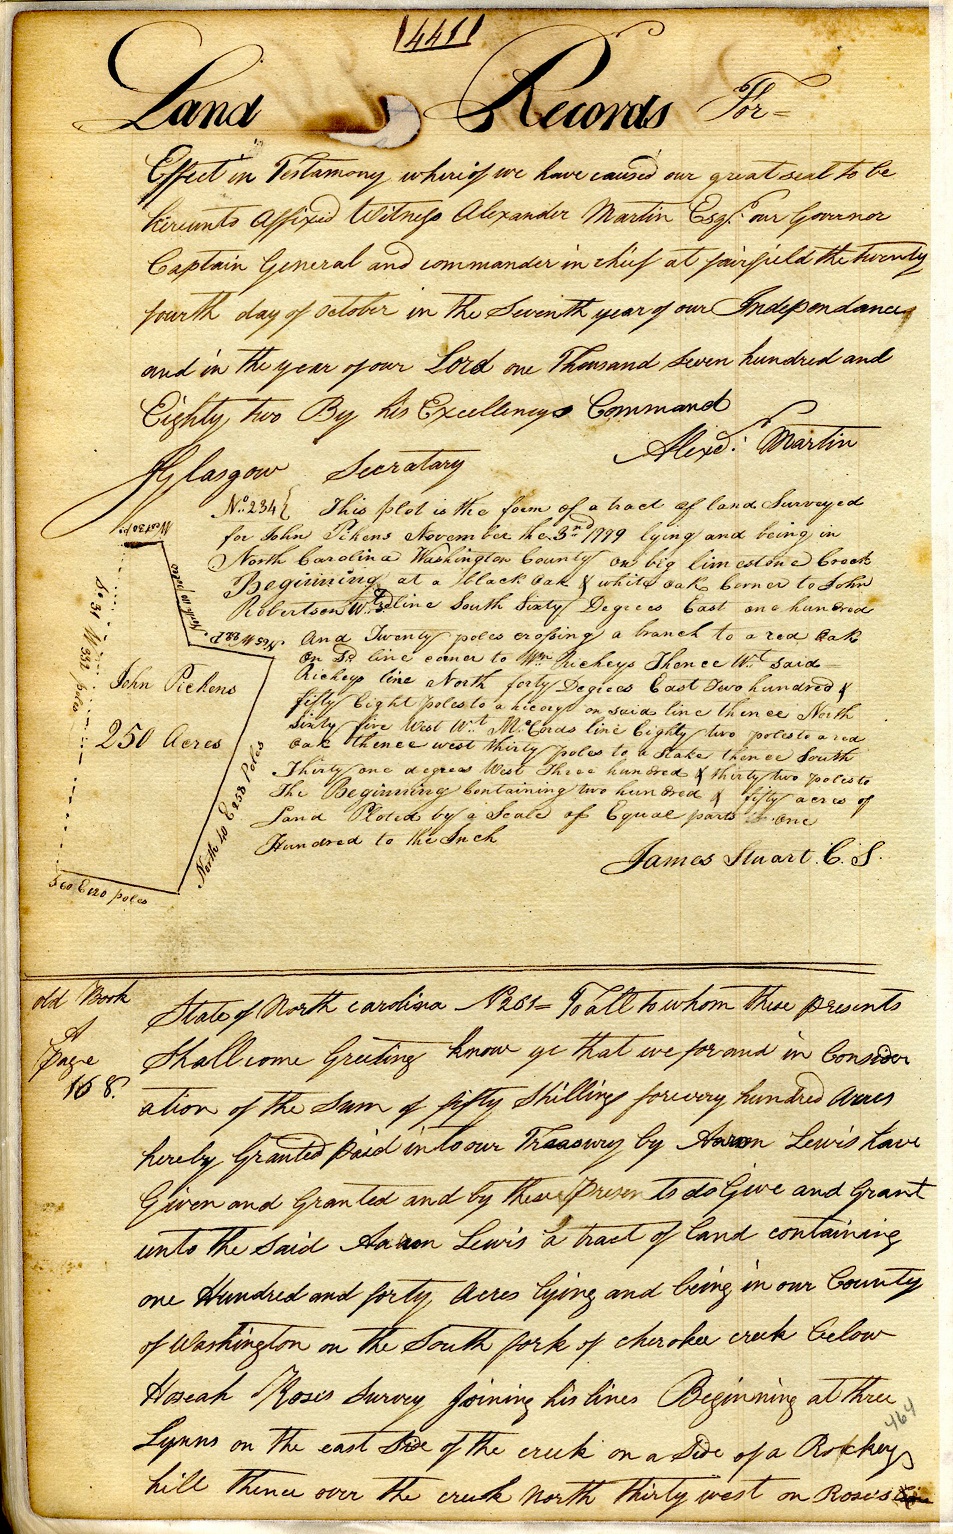 441
Land Records For=
Effect in Testamony whereof we have caused our great seal to be
hereunto affixed Witness Alexander Martin Esqr. our Govornor
Captain General and commander in chief at fairfield the twenty
fourth day of october in the Seventh year of our Independance
and in the year of our Lord one Thousand seven hundred and
Eighty two By his Excellencys Command
Alexd. Martin
JGlasgow Secratary
No. 234 This plot is the form of a tract of land Surveyed
for John Pickens November he 3rd 1779 lying and being in
North Carolina Washington County on big limestone Creek
Beginning at a black oak & white oak Corner to John
Robertson Wt. Sd line South Sixty Degrees East one hundred
And Twenty poles crossing a branch to a red Oak
on Sd line corner to Wm Richeys Thence Wt. said
Richeys line North forty Degrees East Two hundred &
fifty Eight poles to a hicory on said line thence North
Sixty five West Wt. McCords line Eighty two poles to a red
Oak thence west thirty poles to a Stake thence South
Thirty one degrees West Three hundred & thirty two poles to
The Beginning Containing two hundred & fifty acres of
Land Ploted by a Scale of Equal parts One
Hundred to the Inch
James Stuart. C. S.
West 30 Po
So 31 W 332 poles
N 65 W 82 P
John Pickens
250 Acres
North 40 E 258 Poles
S 60 E 120 poles
old Book
A
page
168.
State of North carolina No 261= To all to whom these presents
Shall come Greeting know ye that we for and in Consider
ation of the Sum of fifty Shillings forevery hundred Acres
hereby Granted paid into our Treasury by Aaron Lewis have
Given and Granted and by these presents do Give and Grant
unto the said Aaron Lewis a tract of land containing
one Hundred and forty Acres lying and being in our County
of Washington on the South fork of cherokee creek below
Hoseah Roses Survey Joining his lines Beginning at three
Lynns on the east Side of the creek on a Side of a Rockey
hill thence over the creek North thirty west on Roses
464